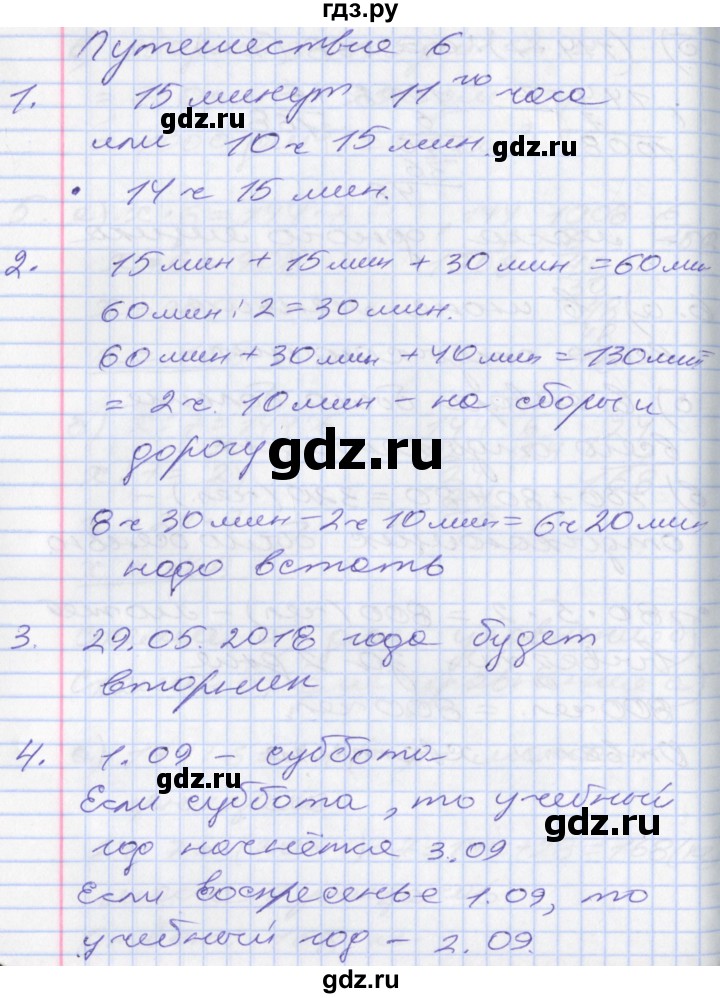 гдз.ру
Путешествие 6
1. 15 минут 11го часа
gdz.ru
или 10 ч 15 мин.
gdz.ru
• 14 ч 15 мин.
2. 15 мин + 15 мин + 30 мин = 60 мин
60 мин : 2 = 30 мин.
60 мин + 30 мин + 40 мин = 130 мин =
= 2 ч. 10 мин – на сборы и
дорогу
gdz.ru
8 ч 30 мин – 2 ч 10 мин = 6 ч 20 мин
надо встать
3. 29.05.2018 года будет
вторник
4. 1.09 – суббота
gdz.ru
Если суббота, то учебный
gdz.ru
год начнётся 3.09
Если воскресенье 1.09, то
учебный год – 2.09.
gdz.ru
gdz.ru